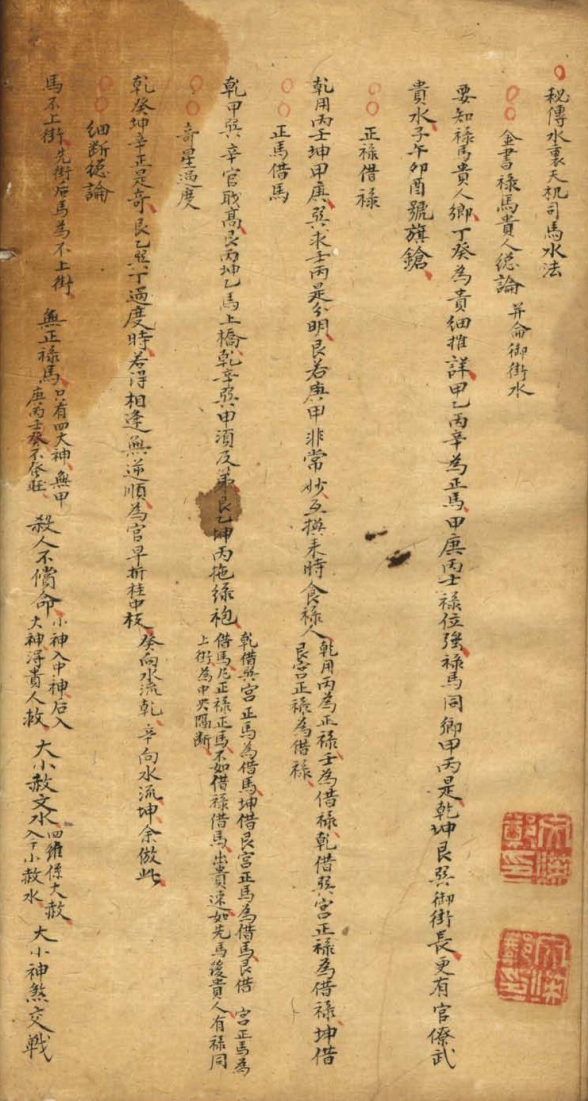 秘傳水裏天机司馬水法
金書祿馬貴人總論 并侖御街水
要知祿馬貴人鄉丁癸為貴細推詳甲乙丙辛為正馬甲庚丙壬祿位強祿馬同鄉甲丙是乾坤艮巽御街長更有官僚武
貴水子午卯酉號旗鎗
正祿借祿
乾用丙壬坤甲庚巽求壬丙是分明艮若庚甲非常妙互換来時食祿人 乾用丙為正祿壬為借祿乾借巽宮正祿為借祿坤借
艮宮正祿為借祿
正馬借馬
乾甲巽辛官職髙艮丙坤乙馬上橋乾辛巽甲須及第艮乙坤丙拖綠袍 乾借巽宮正馬為借馬坤借艮宮正馬為借馬艮借 宮正馬為
借馬凡正祿正馬不如借祿借馬出貴速如先馬後貴人有祿同
上街為中央隔断
奇星過度
乾癸坤辛正是奇艮乙巽丁過度時若得相逢無逆順為官早折桂中枝 癸向水流乾辛向水流坤余倣此
細断總論
馬不上街 先街后馬為不上街 無正祿馬 只有四大神無甲
庚丙壬癸不發旺 殺人不償命 小神入中神后入
大神得貴人救 大小赦文水 四維係大赦
入下小赦水 大小神煞交戰